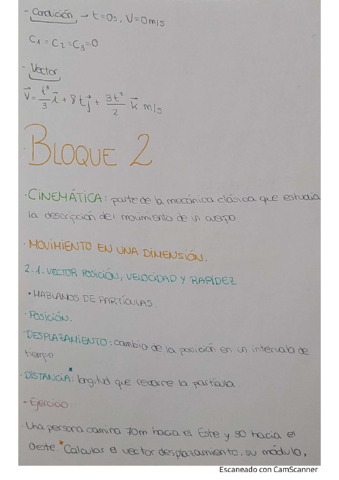 - Condición → t=0s, V=0m/s
C₁ = C₂ = C₃ = 0
- Vector
V⃗ = t³/3 i⃗ + 8t j⃗ + 3t²/2 k⃗ m/s
BLOQUE 2
· CINEMÁTICA: parte de la mecánica clásica que estudia
la descripción del movimiento de un cuerpo
· MOVIMIENTO EN UNA DIMENSIÓN.
2.1. VECTOR POSICIÓN, VELOCIDAD Y RAPIDEZ
• HABLAMOS DE PARTÍCULAS.
· POSICIÓN.
· DESPLAZAMIENTO: cambio de la posición en un intervalo de
tiempo
· DISTANCIA: longitud que recorre la partícula
- Ejercicio
Una persona camina 70m hacia el Este y 90 hacia el
oeste. Calcular el vector desplazamiento, su módulo,
Escaneado con CamScanner